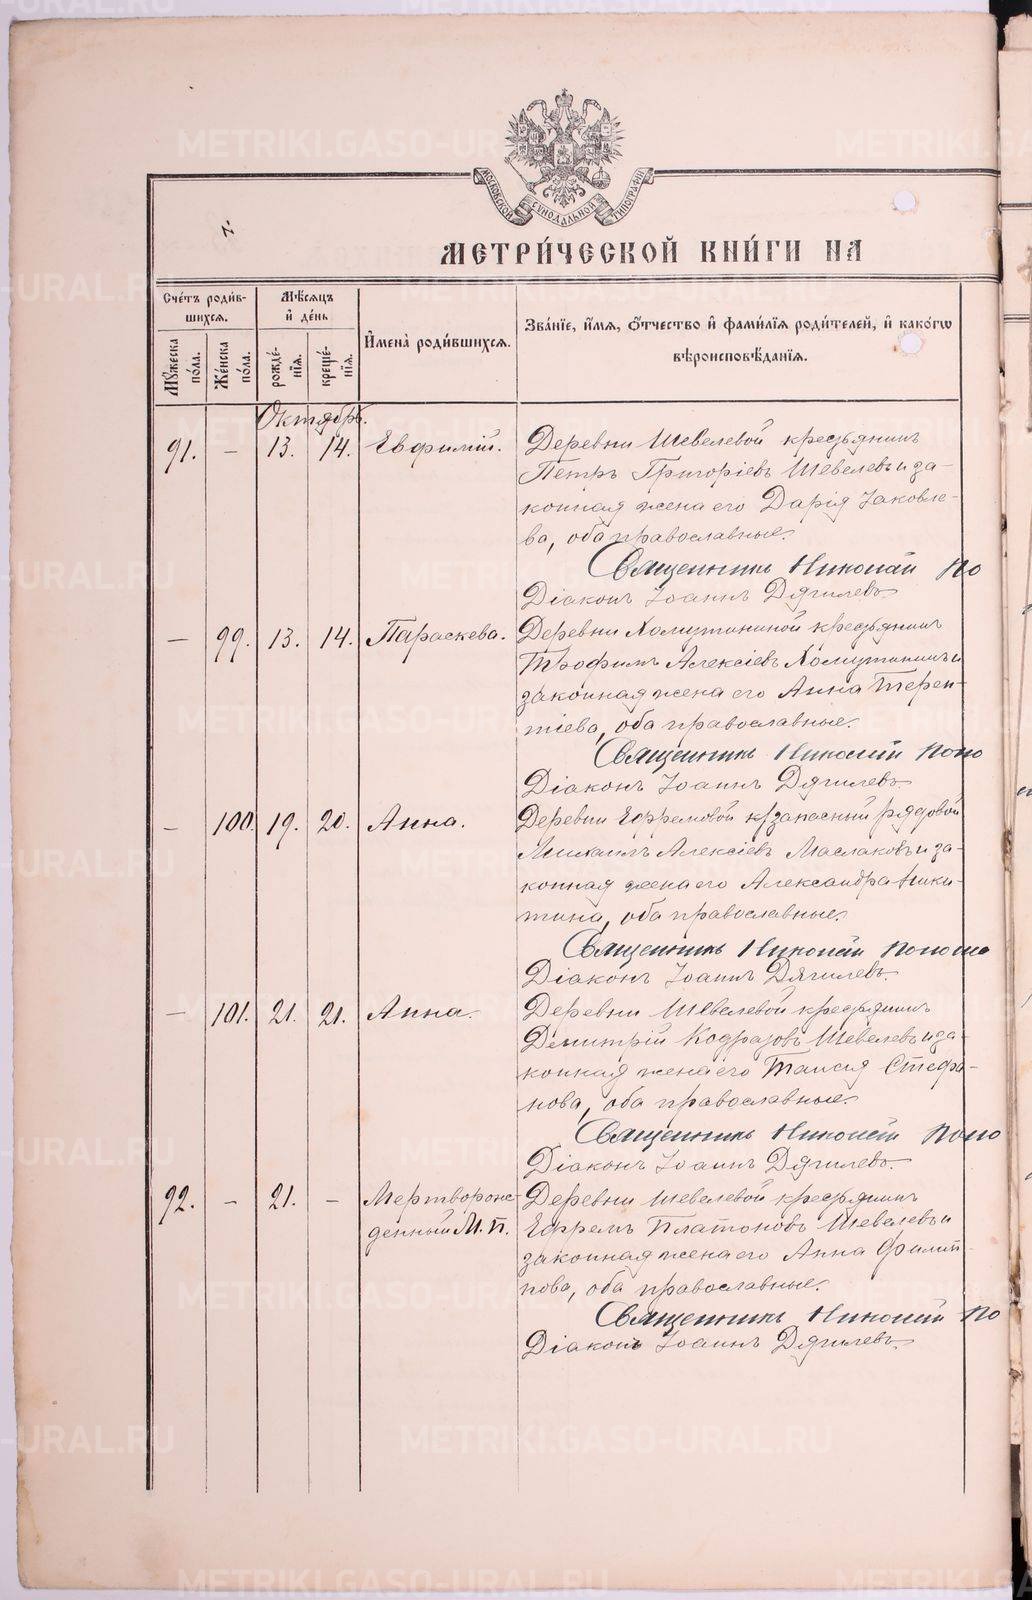 METRIKI.GASO-URAL.RU
МОСКОВСКОЙ СѴНОДАЛЬНОЙ ТИПОГРАФІИ
МЕТРИ́ЧЕСКОЙ КНИ́ГИ НА
Сче́тъ роди́в-
шихся.
Мѣ́сяцъ
и҆ де́нь
И҆мена̀ роди́вшихся.
Зва́нїе, и҆́мя, ѻ҆́тчество и҆ фами́лїя роди́телей, и҆ како́гѡ
вѣроисповѣ́данїя.
Мꙋ́жеска
по́ла.
Же́нска
по́ла.
рожде́-
нїя.
креще́-
нїя.
Октябрь.
91. – 13. 14. Евфимій. Деревни Шевелевой крестьянинъ
Петръ Григоріевъ Шевелевъ и за-
конная жена его Дарія Іаковле-
ва, оба православные.
Священникъ Николай По
Діаконъ Іоаннъ Дягилевъ.
– 99. 13. 14. Параскева. Деревни Хомутининой крестьянинъ
Трофимъ Алексіевъ Хомутининъ и
законная жена его Анна Терен-
тіева, оба православные.
Священникъ Николай Попо
Діаконъ Іоаннъ Дягилевъ.
– 100. 19. 20. Анна. Деревни Ефремовой запасный рядовой
Михаилъ Алексіевъ Маслаковъ и за-
конная жена его Александра Ники-
тина, оба православные.
Священникъ Николай Попо
Діаконъ Іоаннъ Дягилевъ.
– 101. 21. 21. Анна. Деревни Шевелевой крестьянинъ
Димитрій Кодратовъ Шевелевъ и за-
конная жена его Таисія Стефа-
нова, оба православные.
Священникъ Николай Попо
Діаконъ Іоаннъ Дягилевъ.
92. – 21. – Мертворож- Деревни Шевелевой крестьянинъ
денный М. п. Ефремъ Платоновъ Шевелевъ и
законная жена его Анна Филип-
пова, оба православные.
Священникъ Николай По
Діаконъ Іоаннъ Дягилевъ.